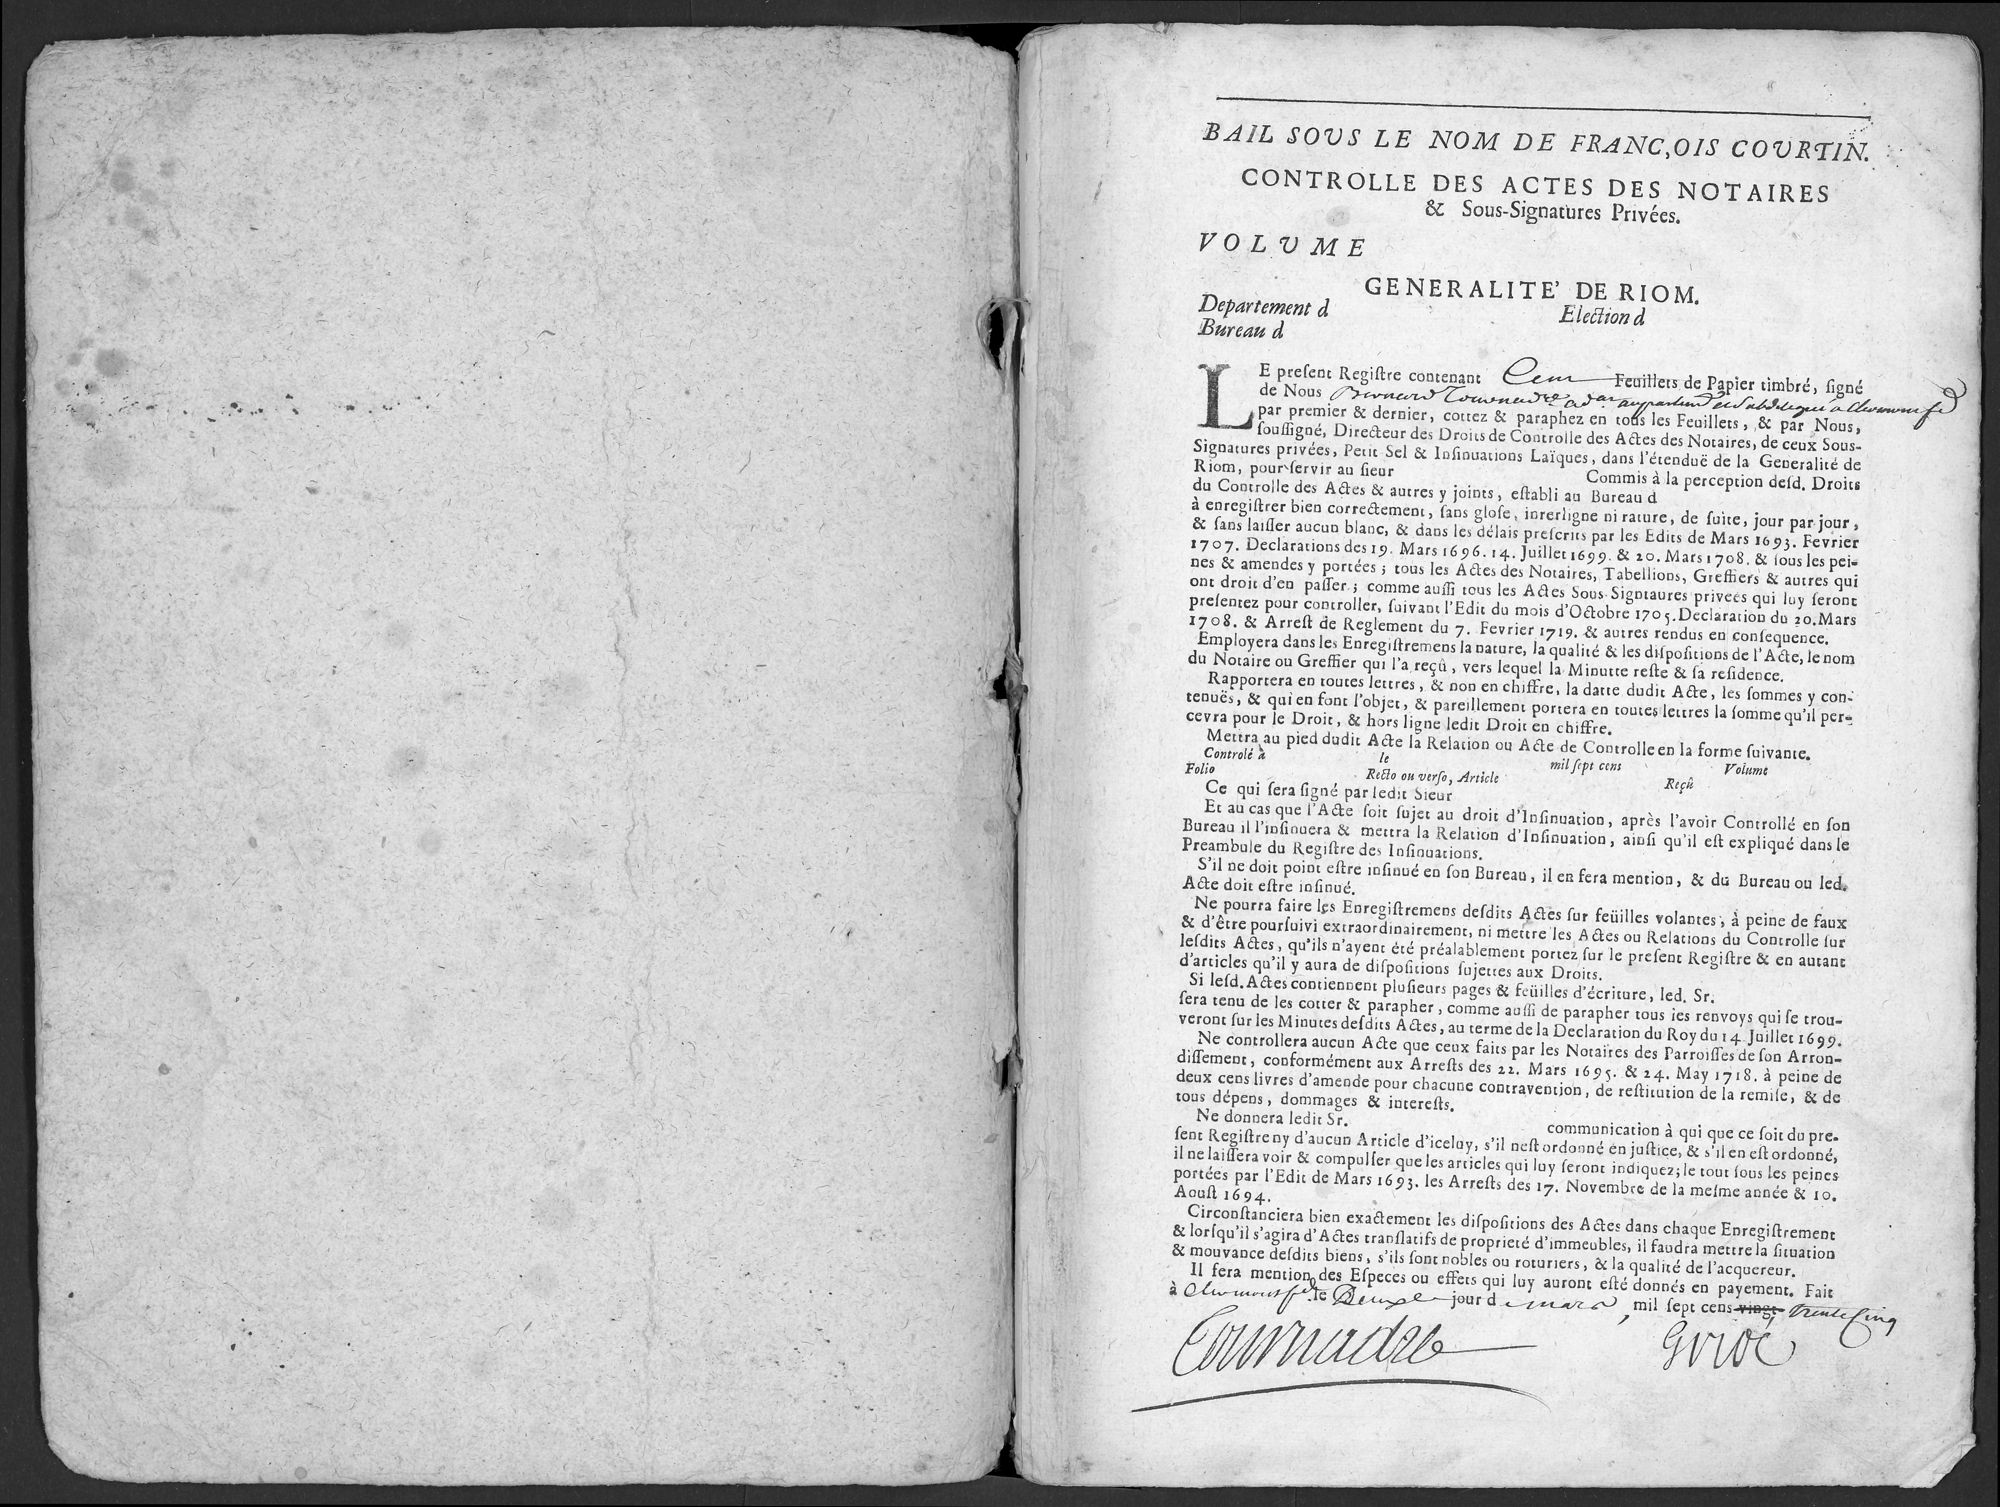 BAIL SOUS LE NOM DE FRANC,OIS COURTIN.
CONTROLLE DES ACTES DES NOTAIRES
& Sous-Signatures Privées.
VOLVME
GENERALITE' DE RIOM.
Departement d Election d
Bureau d
LE preſent Regiſtre contenant Cent Feuillets de Papier timbré, ſigné
de Nous Bernard Tournadre
par premier & dernier, cottez & paraphez en tous les Feuillets, & par Nous,
ſouſſigné, Directeur des Droits de Controlle des Actes des Notaires, de ceux Sous-
Signatures privées, Petit Sel & Inſinuations Laïques, dans l'étenduë de la Generalité de
Riom, pour ſervir au ſieur Commis à la perception deſd. Droits
du Controlle des Actes & autres y joints, eſtabli au Bureau d
à enregiſtrer bien correctement, ſans gloſe, inrerligne ni rature, de ſuite, jour par jour,
& ſans laiſſer aucun blanc, & dans les délais preſcrits par les Edits de Mars 1693. Fevrier
1707. Declarations des 19. Mars 1696. 14. Juillet 1699. & 20. Mars 1708. & ſous les pei-
nes & amendes y portées; tous les Actes des Notaires, Tabellions, Greffiers & autres qui
ont droit d'en paſſer; comme auſſi tous les Actes Sous-Signtaures privées qui luy ſeront
preſentez pour controller, ſuivant l'Edit du mois d'Octobre 1705. Declaration du 20. Mars
1708. & Arreſt de Reglement du 7. Fevrier 1719. & autres rendus en conſequence.
Employera dans les Enregiſtremens la nature, la qualité & les diſpoſitions de l'Acte, le nom
du Notaire ou Greffier qui l'a reçû, vers lequel la Minutte reſte & ſa reſidence.
Rapportera en toutes lettres, & non en chiffre, la datte dudit Acte, les ſommes y con-
tenuës, & qui en font l'objet, & pareillement portera en toutes lettres la ſomme qu'il per-
cevra pour le Droit, & hors ligne ledit Droit en chiffre.
Mettra au pied dudit Acte la Relation ou Acte de Controlle en la forme ſuivante.
Controlé à le mil ſept cens Volume
Folio Recto ou verſo, Article Reçû
Ce qui ſera ſigné par ledit Sieur
Et au cas que l'Acte ſoit ſujet au droit d'Inſinuation, après l'avoir Controllé en ſon
Bureau il l'inſinuera & mettra la Relation d'Inſinuation, ainſi qu'il eſt expliqué dans le
Preambule du Regiſtre des Inſinuations.
S'il ne doit point eſtre inſinué en ſon Bureau, il en fera mention, & du Bureau ou led.
Acte doit eſtre inſinué.
Ne pourra faire les Enregiſtremens deſdits Actes ſur feüilles volantes, à peine de faux
& d'être pourſuivi extraordinairement, ni mettre les Actes ou Relations du Controlle ſur
leſdits Actes, qu'ils n'ayent été préalablement portez ſur le preſent Regiſtre & en autant
d'articles qu'il y aura de diſpoſitions ſujettes aux Droits.
Si leſd. Actes contiennent pluſieurs pages & feüilles d'écriture, led. Sr.
ſera tenu de les cotter & parapher, comme auſſi de parapher tous les renvoys qui ſe trou-
veront ſur les Minutes deſdits Actes, au terme de la Declaration du Roy du 14. Juillet 1699.
Ne controllera aucun Acte que ceux faits par les Notaires des Parroiſſes de ſon Arron-
diſſement, conformément aux Arreſts des 22. Mars 1695. & 24. May 1718. à peine de
deux cens livres d'amende pour chacune contravention, de reſtitution de la remiſe, & de
tous dépens, dommages & intereſts.
Ne donnera ledit Sr. communication à qui que ce ſoit du pre-
ſent Regiſtre ny d'aucun Article d'iceluy, s'il neſt ordonné en juſtice, & s'il en eſt ordonné,
il ne laiſſera voir & compulſer que les articles qui luy ſeront indiquez; le tout ſous les peines
portées par l'Edit de Mars 1693. les Arreſts des 17. Novembre de la meſme année & 10.
Aouſt 1694.
Circonſtanciera bien exactement les diſpoſitions des Actes dans chaque Enregiſtrement
& lorſqu'il s'agira d'Actes tranſlatifs de proprieté d'immeubles, il faudra mettre la ſituation
& mouvance deſdits biens, s'ils ſont nobles ou roturiers, & la qualité de l'acquereur.
Il fera mention des Eſpeces ou effets qui luy auront eſté donnés en payement. Fait
à le jour d mars, mil ſept cens vingt trente cinq
Tournadre